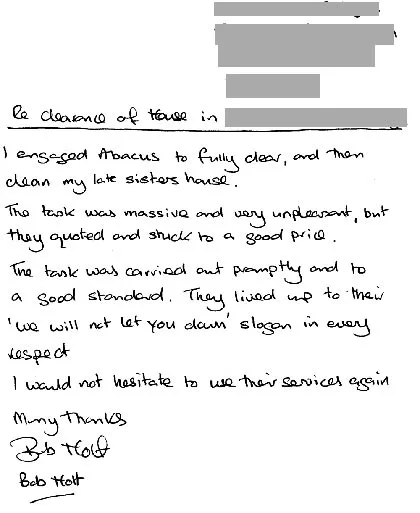 Re clearance of House in
I engaged Abacus to fully clear, and then
clean my late sisters house.
The task was massive and very unpleasant, but
they quoted and stuck to a good price.
The task was carried out promptly and to
a good standard. They lived up to their
'we will not let you down' slogan in every
respect
I would not hesitate to use their services again
Many Thanks
Bob Holt
Bob Holt